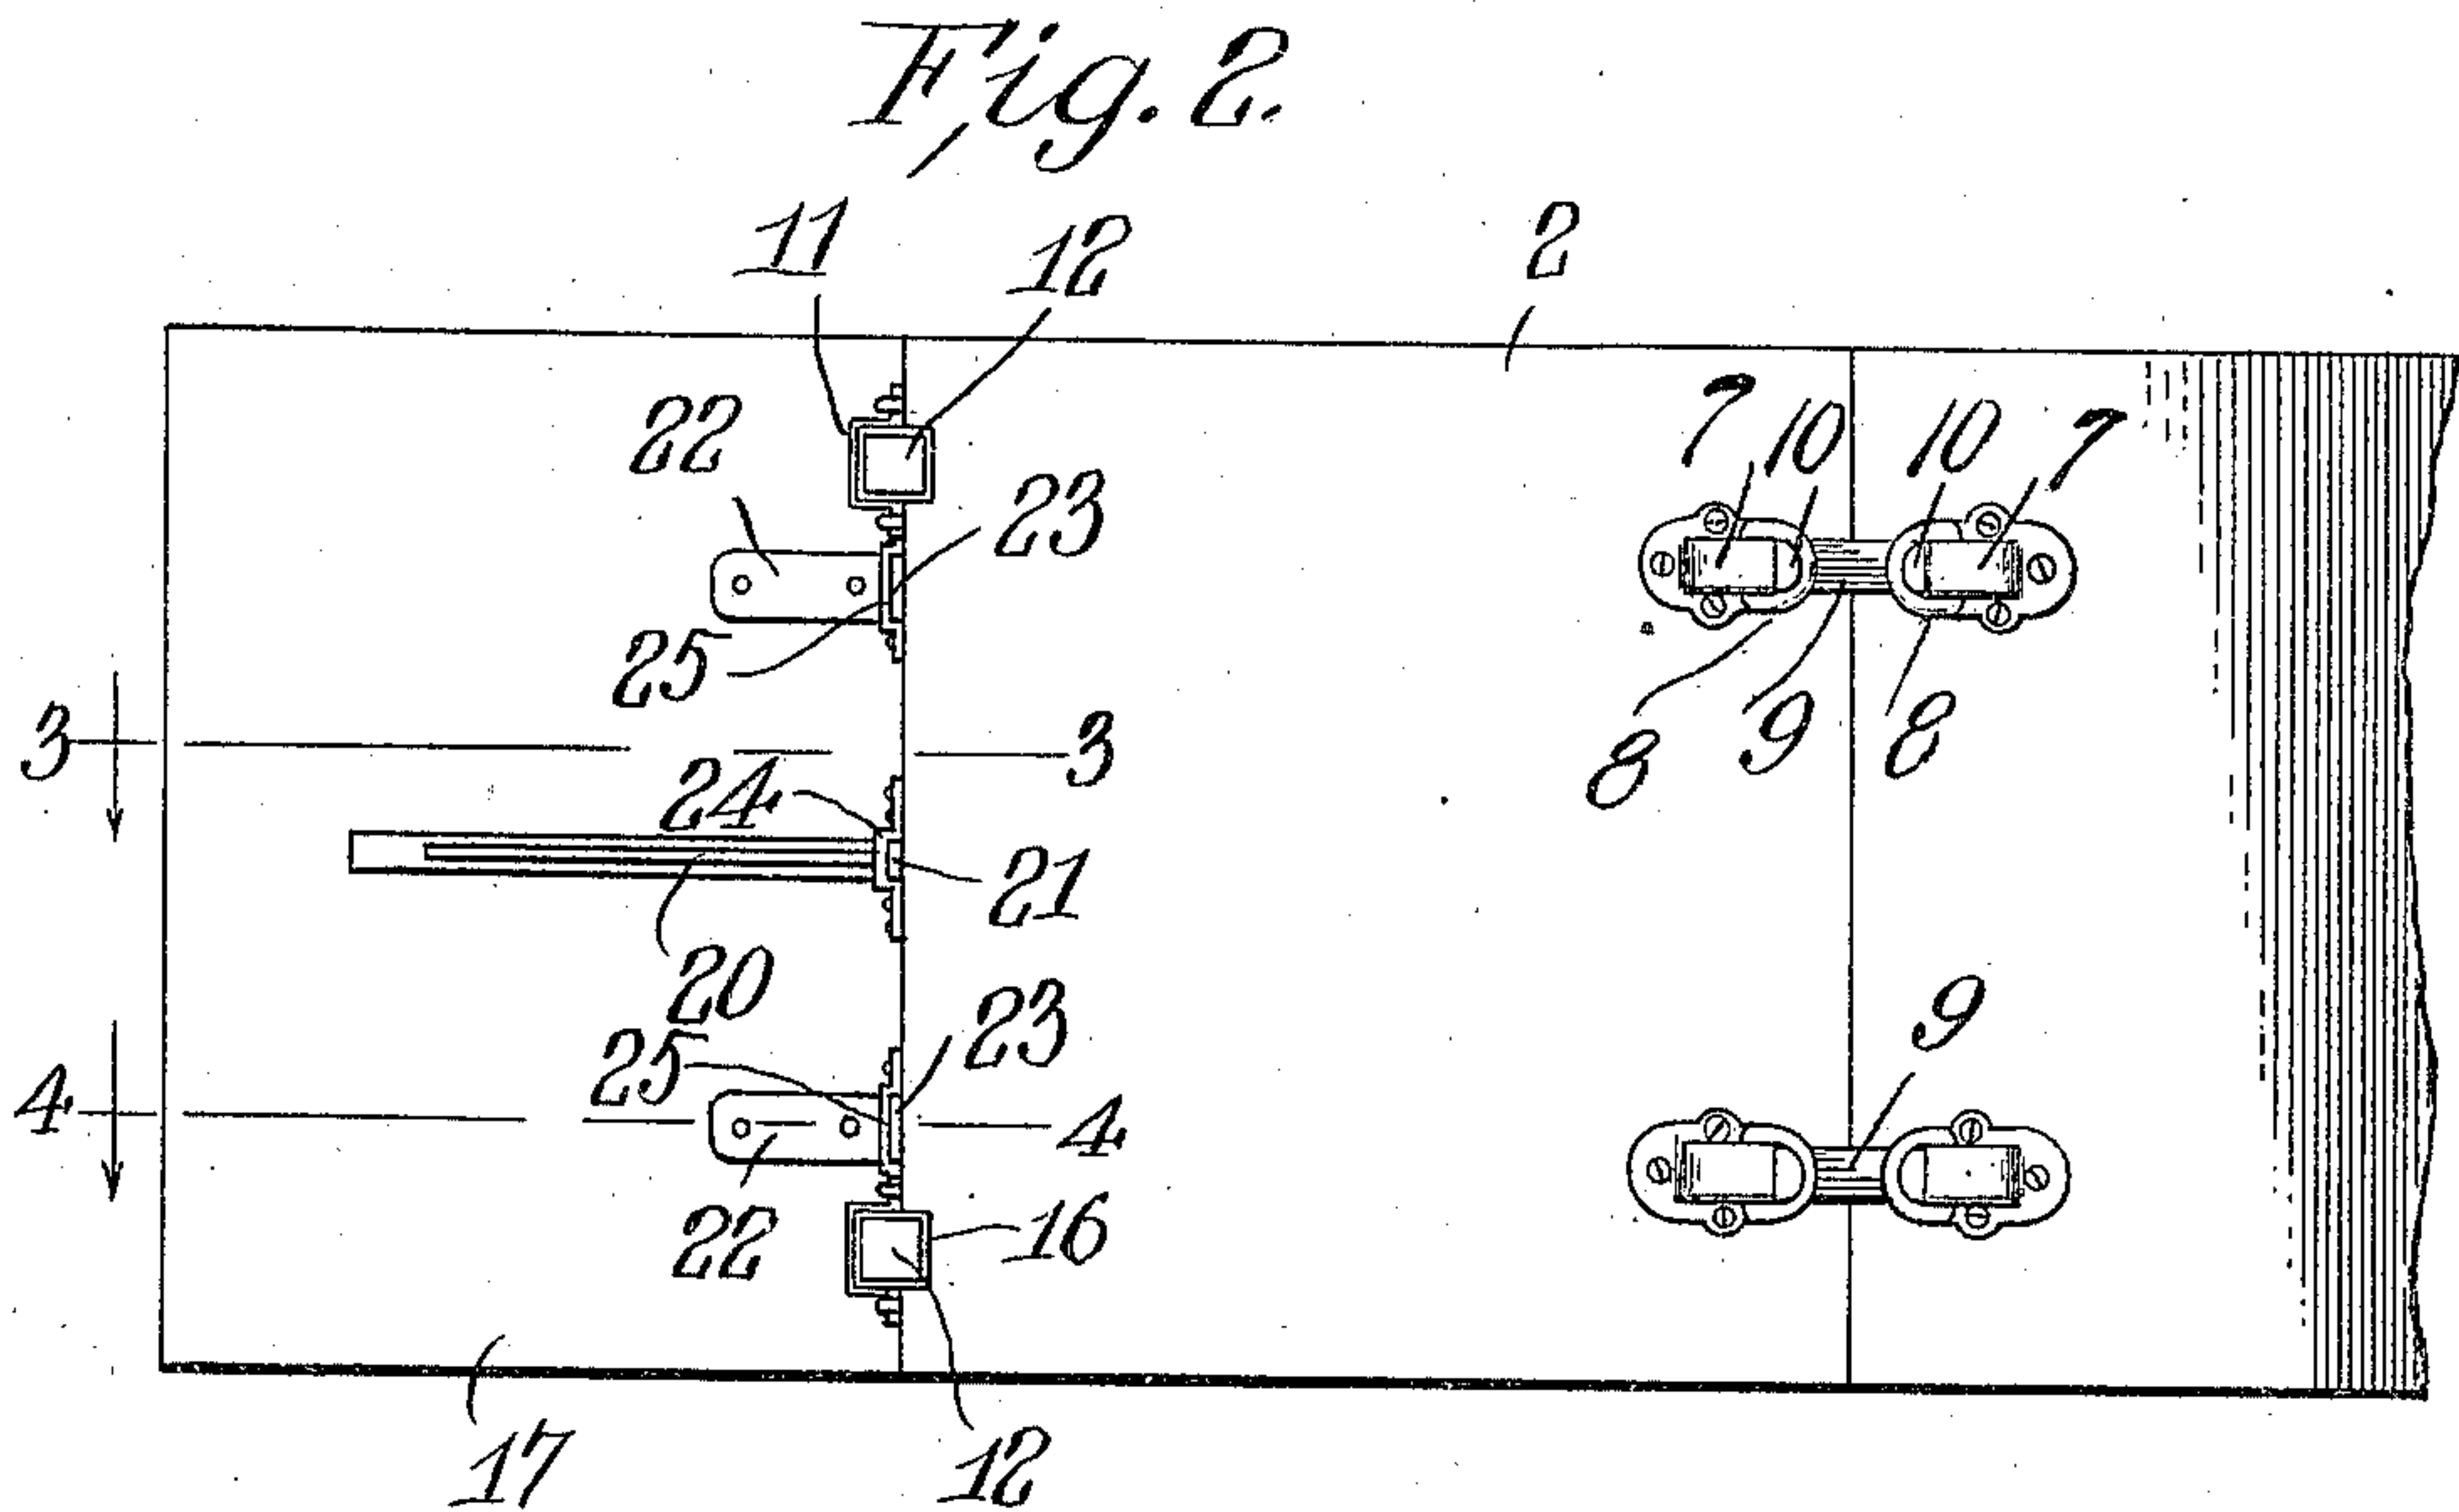 Fig. 2.
11 12 2
22 7 10 10 7
23
25
3 3 8 9 8
24
21
20
25 23 9
4 4
22 16
17 12